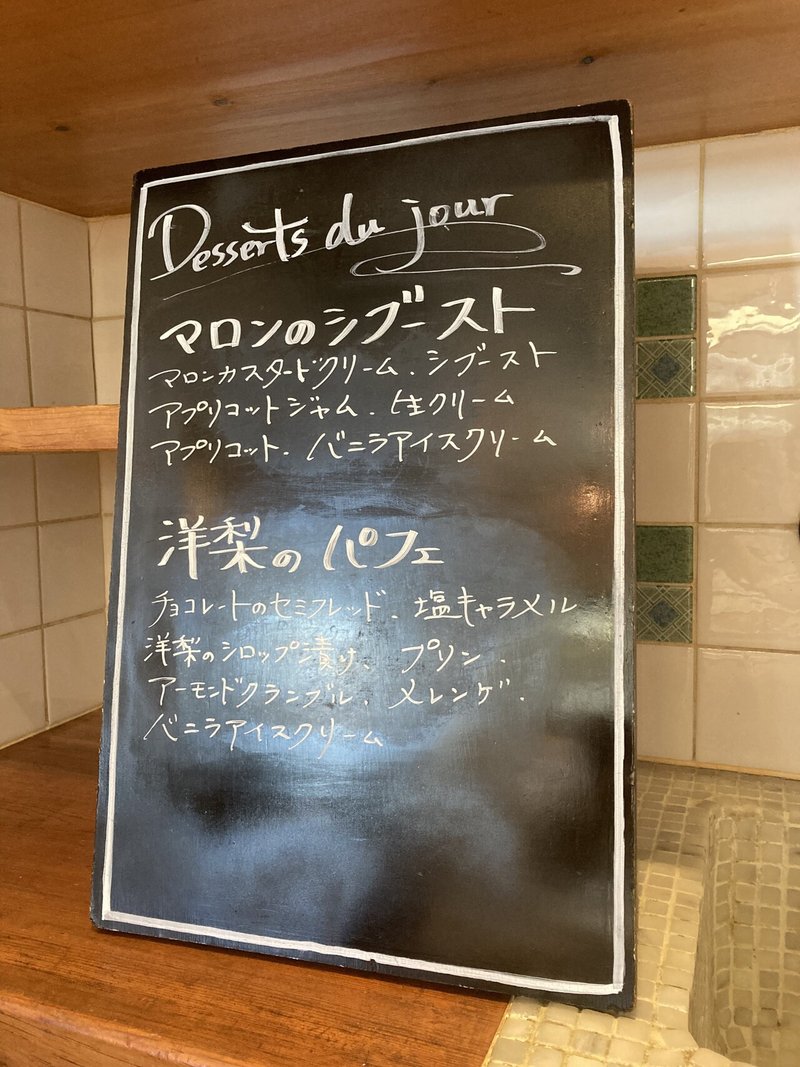 Desserts du jour
マロンのシブースト
マロンカスタードクリーム、シブースト
アプリコットジャム、生クリーム
アプリコット、バニラアイスクリーム
洋梨のパフェ
チョコレートのセミフレッド、塩キャラメル
洋梨のシロップ漬け、プリン、
アーモンドクランブル、メレンゲ、
バニラアイスクリーム